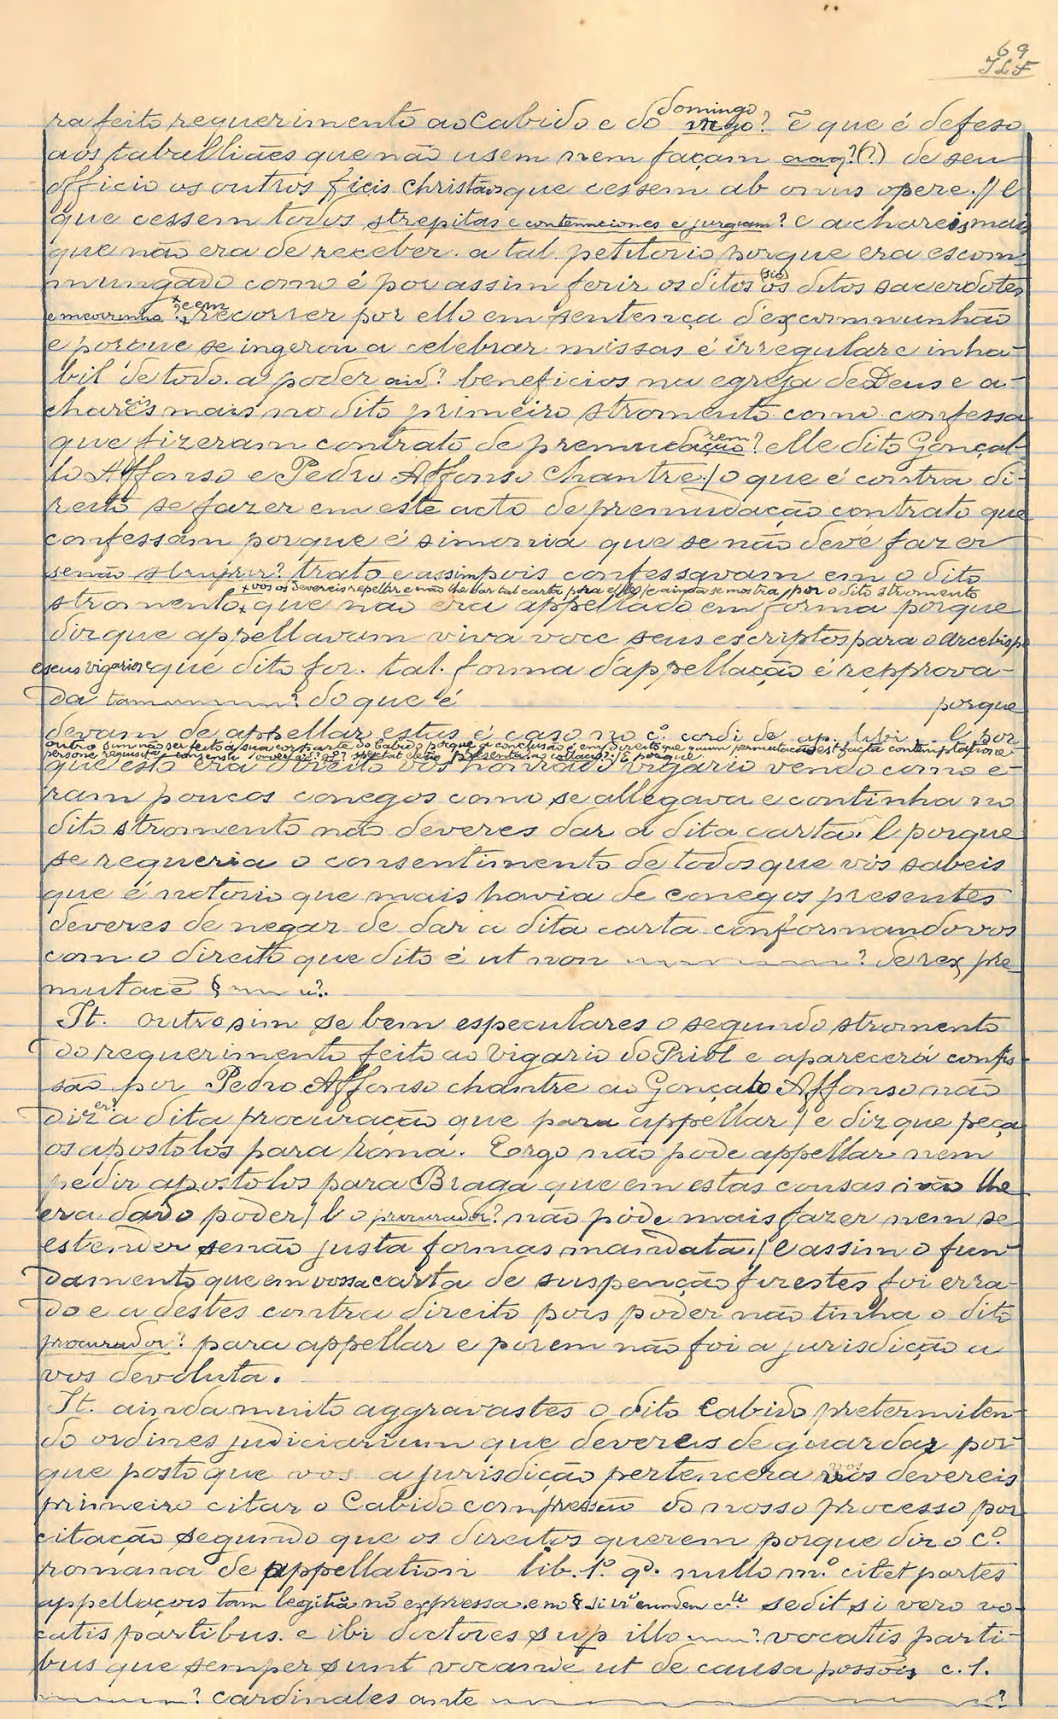 69
JLF
ra feito requerimento ao Cabido e do domingo? ẽ que é defeso
aos tabelliães que não usem nem façam aaq?(?) de seu
officio os outros ficis christãos que cessem ab onus opere. // E
que cessem todos strepitas e contenuciones e jurgium? E achareis mais
que não era de receber a tal petitorio porque era escom-
mungado como é pou assim ferir os ditos os ditos sacerdotes
recorrer por ello em sentença d'excommunhão
e porque se ingerou a celebrar missas é irregular e inha-
bil de todo a poder aid? beneficios na egreja de Deus e a-
chareis mais no dito primeiro stromento como confessa
que fizeram contrato de premudação? elle dito Gonçal-
lo Affonso e Pedro Affonso Chantre / o que é contra di-
reito se fazer em este acto de premudação contrato que
confessam porque é simonia que se não deve fazer
senão strupir? trato e assim pois confessavam em o dito
+ vos os devereis repellir e não lhe dar tal carta pera elles / e ainda se mostra / por o dito stromento
stromento + que não era appellado em forma porque
diz que appellavam viva voce seus escriptos para o arcebispo
e seus vigarios e que dito for. tal. forma d'appellação é repprova-
da tam ? do que é porque
devam de appellar estas é caso no cº. cordi de ap. libi . E por
outro sim não ser feito a sua cor parte do Cabido porque a conclusão é em direito que quum permutacão est facta contemplatione
persone requisita
que esto era direito vos honrado vigario vendo como e-
ram poucos conegos como se allegava e continha no
dito stromento não deveres dar a dita carta. E porque
se requeria o consentimento de todos que vós sabeis
que é notorio que mais havia de conegos presentes
deveres de negar de dar a dita carta conformando vos
com o direito que dito é ut non ? de rex pre-
mutacẽ § u?.
It. outrosim se bem especulares o segundo stromento
do requerimento feito ao Vigario do Priol e aparecerá confis-
são por Pedro Affonso chantre ao Gonçalo Affonso não
dizer? a dita procuração que para appellar / e diz que peça
os apostolos para Roma. Ergo não pode appellar nem
pedir apostolos para Braga que em estas cousas não lhe
era dado poder / E o procurador? não póde mais fazer nem se
estender senão justa formas mandata. / E assim o fun-
damento que em vossa carta de suspenção firestes foi erra-
do e a destes contra direito pois poder não tinha o dito
procurador? para appellar e porem não foi a jurisdicção a
vos devoluta.
It. ainda muito aggravastes o dito Cabido pretermiten-
do ordines judiciarium que devereis de guardar por-
que posto que vos a jurisdição pertencera vós devereis
primeiro citar o Cabido com pressão do nosso processo por
citação segundo que os direitos querem porque diz o cº.
romana de appellation lib. 1º. qº. nullo mº. citet partes
appellaçois tam legitiã nõ expressa. em § si vº eundem c.te sedit si vero vo-
catis partibus. e ibi doctores sup illo ? vocatis parti-
bus que semper sunt vocande ut de causa possois c. 1.
? cardinales ante ?